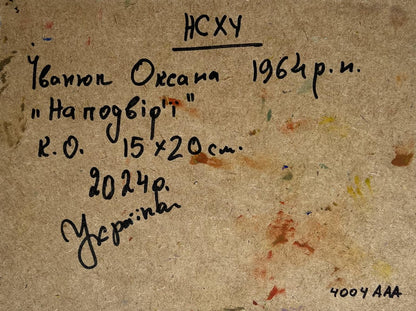 НСХУ
Іванюк Оксана 1964 р.н.
"На подвір'ї"
К.О. 15 х 20 см.
2024р.
Україна
4004 AAA